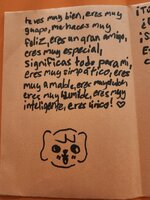 te ves muy bien, eres muy
guapo, me haces muy
feliz, eres un gran amigo,
eres muy especial,
significas todo para mi,
eres muy simpático, eres
muy amable, eres
eres muy humilde, eres muy
inteligente, eres único! ♡